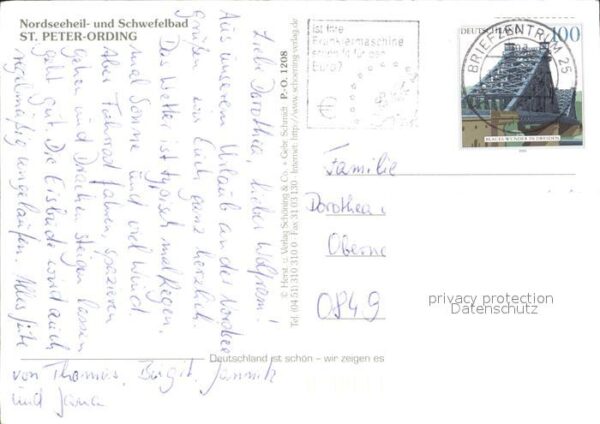 Nordseeheil- und Schwefelbad
ST. PETER-ORDING
Liebe Dorothea, lieber Wolfram!
Aus unserem Urlaub an der Nordsee
grüßen wir Euch ganz herzlich.
Das Wetter ist typisch mal Regen,
mal Sonne und viel Wind.
Aber Fahrrad fahren, spazieren
gehen und Drachen steigen lassen
geht gut. Die Eisbude wird auch
regelmäßig angelaufen. Alles Gute
von Thomas, Birgit, Jannik
und Jana
© Herst. u. Verlag Schöning & Co. + Gebr. Schmidt P.-O. 1208
Tel. (04 51) 310 310 0 · Fax 31 03 130 · Internet: http://www.schoening-verlag.de
Deutschland ist schön – wir zeigen es
Ist Ihre
Frankiermaschine
schon fit für den
Euro?
BRIEFZENTRUM 25
DEUTSCHLAND
100
BLAUES WUNDER IN DRESDEN
Familie
Dorothea
Oberne
0849
privacy protection
Datenschutz